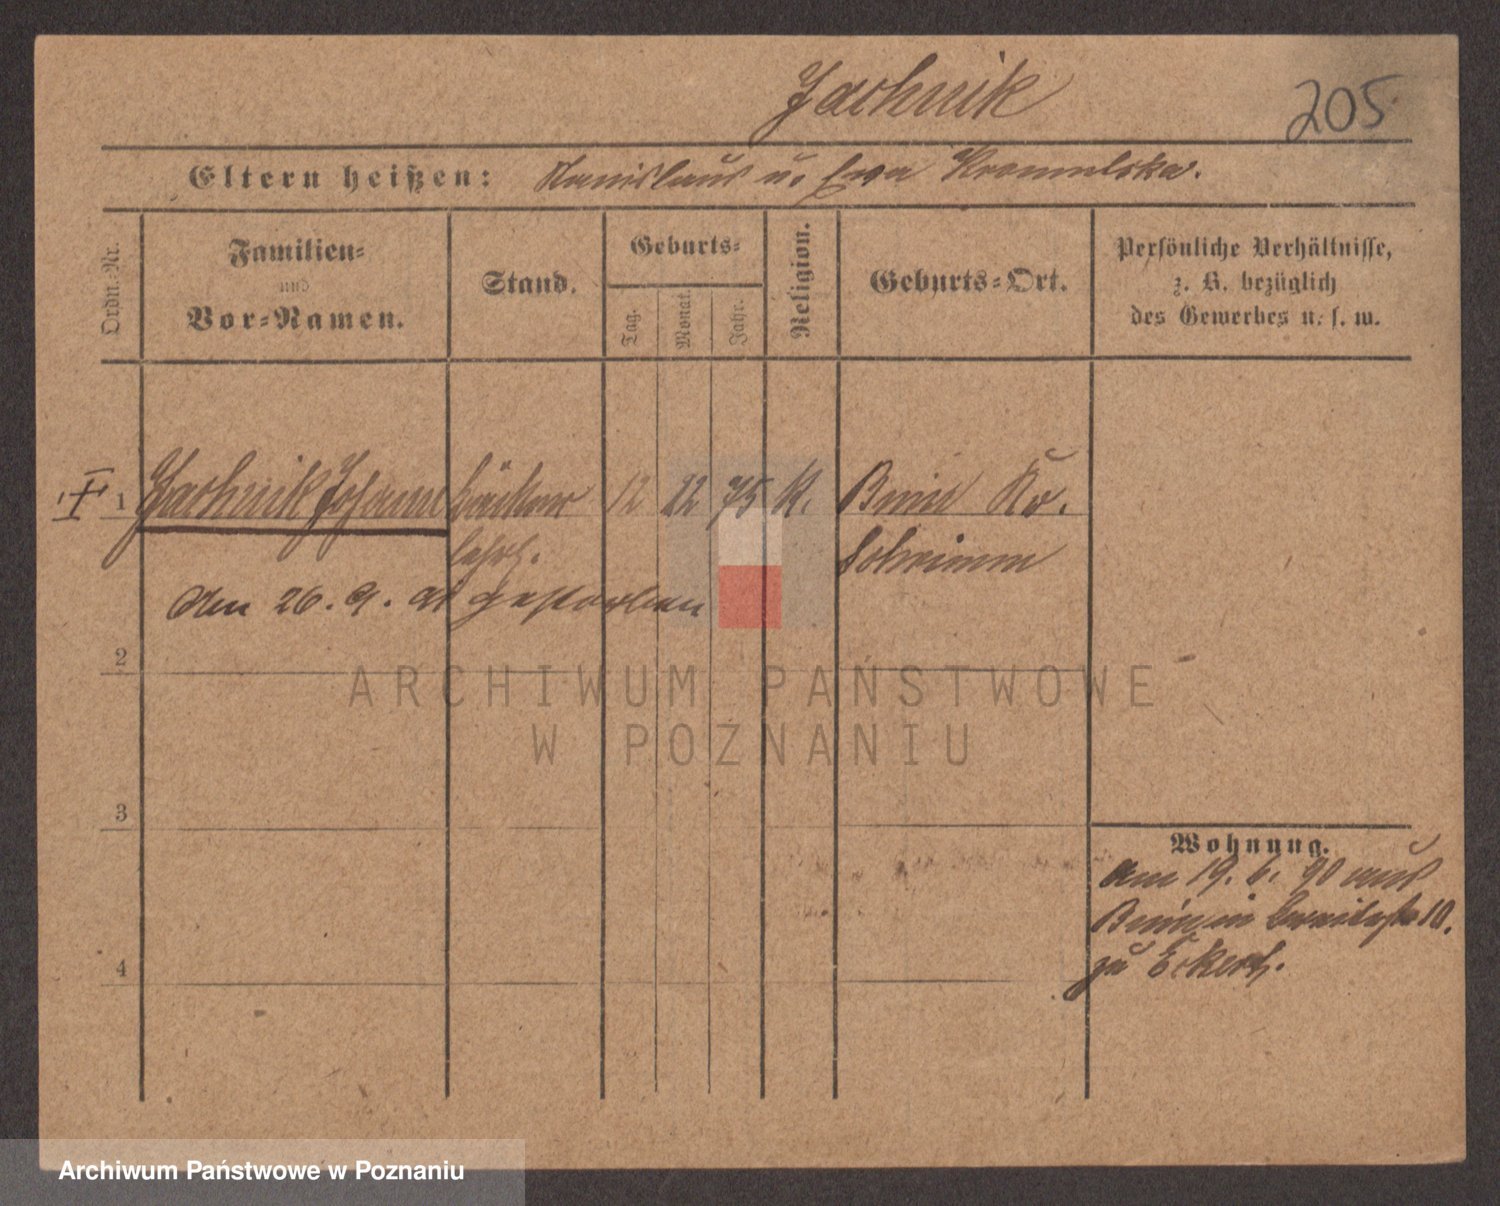 Jachnik
205
Eltern heißen: Stanislaus u. Ewa Kromulska.
Ordn.-Nr.
Familien-
und
Vor-Namen.
Stand.
Geburts-
Tag.
Monat.
Jahr.
Religion.
Geburts-Ort.
Persönliche Verhältnisse,
z. B. bezüglich
des Gewerbes u. s. w.
1 Jachnik Johann Bäcker 12 12 75 K. Bnin Kr.
lehrl. Schrimm
den 26. 9. 91 gestorben
2
ARCHIWUM PAŃSTWOWE
W POZNANIU
3
Wohnung.
am 19. 6. 90 aus
Bnin in 10.
zu Eckert.
4
Archiwum Państwowe w Poznaniu